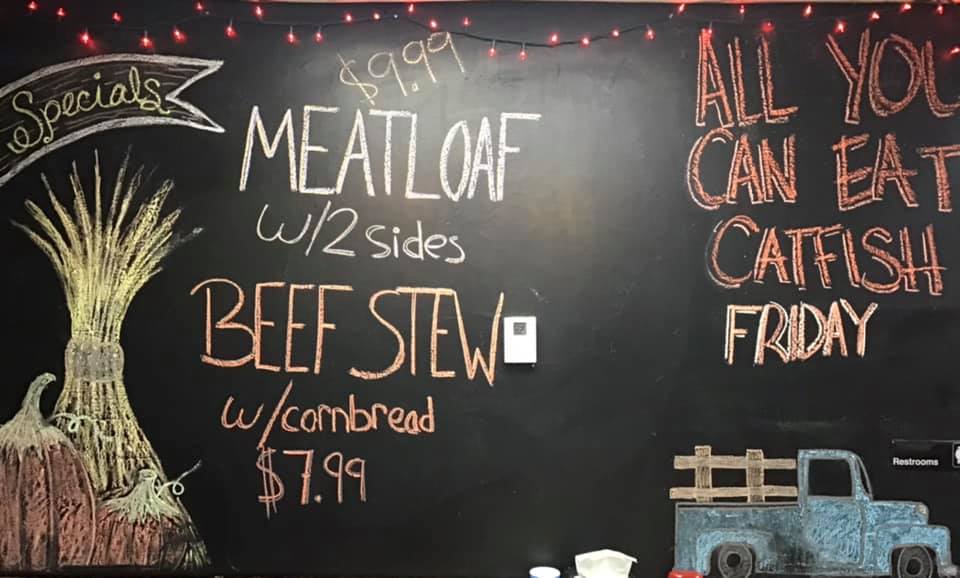 Specials
$9.99
MEATLOAF
w/2 sides
BEEF STEW
w/cornbread
$7.99
ALL YOU
CAN EAT
CATFISH
FRIDAY
Restrooms